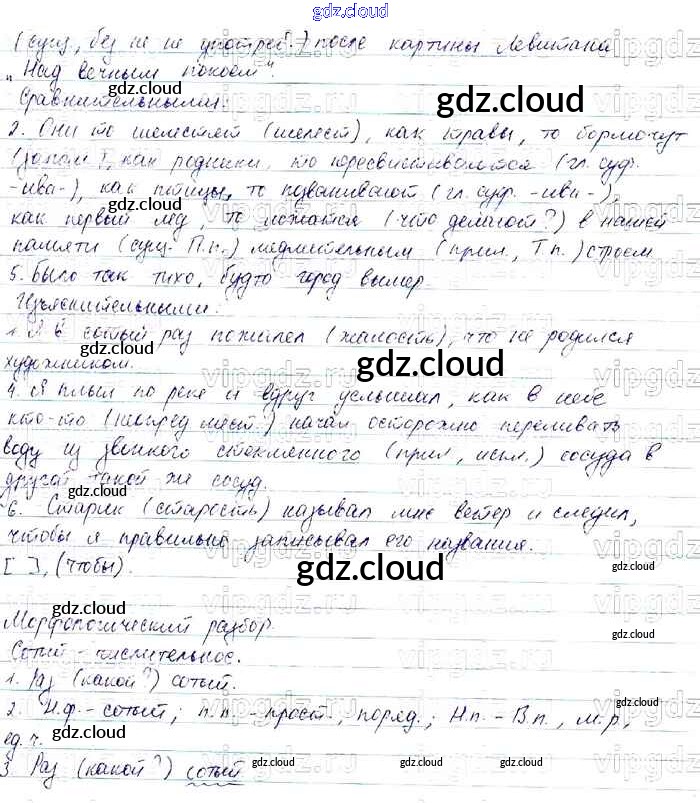 gdz.cloud
(сущ, без не не употреб.) после картины Левитана
„Над вечным покоем".
Сравнительными:
gdz.cloud
2. Они то шелестят (шелест), как травы, то бормочут
как родники, то пересвистываются (гл. суф.
-ива-), как птицы, то позванивают (гл. суф. -ива-),
как первый лёд, то ложатся (что делают?) в нашей
памяти (сущ. П.п.) медлительным (прил., Т.п.) строем
5. Было так тихо, будто город вымер.
Изъяснительными:
1. Я в сотый раз пожалел (жалость), что не родился
художником.
gdz.cloud
4. Я плыл по реке и вдруг услышал, как в небе
кто-то (неопред. мест.) начал осторожно переливать
воду из звонкого стеклянного (прил., искл.) сосуда в
другой такой же сосуд.
gdz.cloud
6. Старик (старость) называл мне ветер и следил,
чтобы я правильно записывал его названия.
[ ], (чтобы).
gdz.cloud
gdz.cloud
gdz.cloud
Морфологический разбор.
gdz.cloud
Сотый - числительное.
1. Раз (какой?) сотый.
2. Н.ф. - сотый; п.п. - прост., поряд.; Н.п. - В.п., м.р.,
gdz.cloud
ед. ч.
3. Раз (какой?) сотый
gdz.cloud
gdz.cloud
gdz.cloud